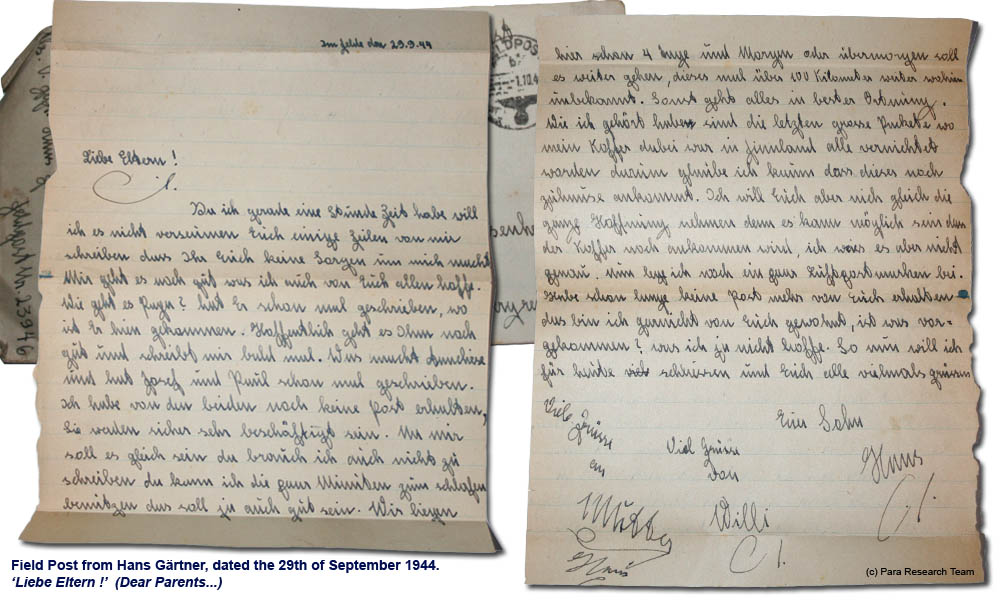 Im Felde den 29.9.44
Liebe Eltern !
Da ich gerade eine Stunde Zeit habe will
ich es nicht verseumen Euch einige Zeilen von mir
schreiben das Ihr Euch keine Sorgen um mich macht
Mir geht es noch gut was ich auch von Euch allen hoffe.
Wie geht es ? hat Er schon mal geschrieben, wo
ist Er hin gekommen. Hoffentlich geht es Ihm noch
gut und schreibt mir bald mal. Was macht
und hat Josef und Paul schon mal geschrieben.
Ich habe von den beiden noch keine Post erhalten,
Sie werden sicher sehr beschäftigt sein. Na mir
soll es gleich sein da brauch ich auch nicht zu
schreiben da kann ich die paar Minuten zum schlafen
benutzen das soll ja auch gut sein. Wir liegen
hier schon 4 Tage und Morgen oder übermorgen soll
es weiter gehen, dieses mal über 100 Kilometer weiter wohin
unbekannt. Sonst geht alles in bester Ordnung.
Wie ich gehört habe sind die letzten grosse Packete wo
mein Koffer dabei war in Finnland alle vernichtet
worden darum glaube ich kaum dass dieses noch
zuhause ankommt. Ich will Euch aber nich gleich die
ganze Hoffnung nehmen denn es kann möglich sein das
der Koffer noch ankommen wird, ich weis es aber nicht
genau. Nun lege ich noch ein paar Luftpostmarken bei.
Habe schon lange keine Post mehr von Euch erhalten
das bin ich garnicht von Euch gewohnt, ist was vor-
gekommen? was ich ja nicht hoffe. So nun will ich
für heute schliessen und Euch alle vielmals grüssen
Euer Sohn
Hans
Viele Grüsse an
Viel Grüsse
von
Willi
Hans
23976
FELDPOST
-1.10.4
Field Post from Hans Gärtner, dated the 29th of September 1944.
‘Liebe Eltern !’ (Dear Parents...)
(c) Para Research Team